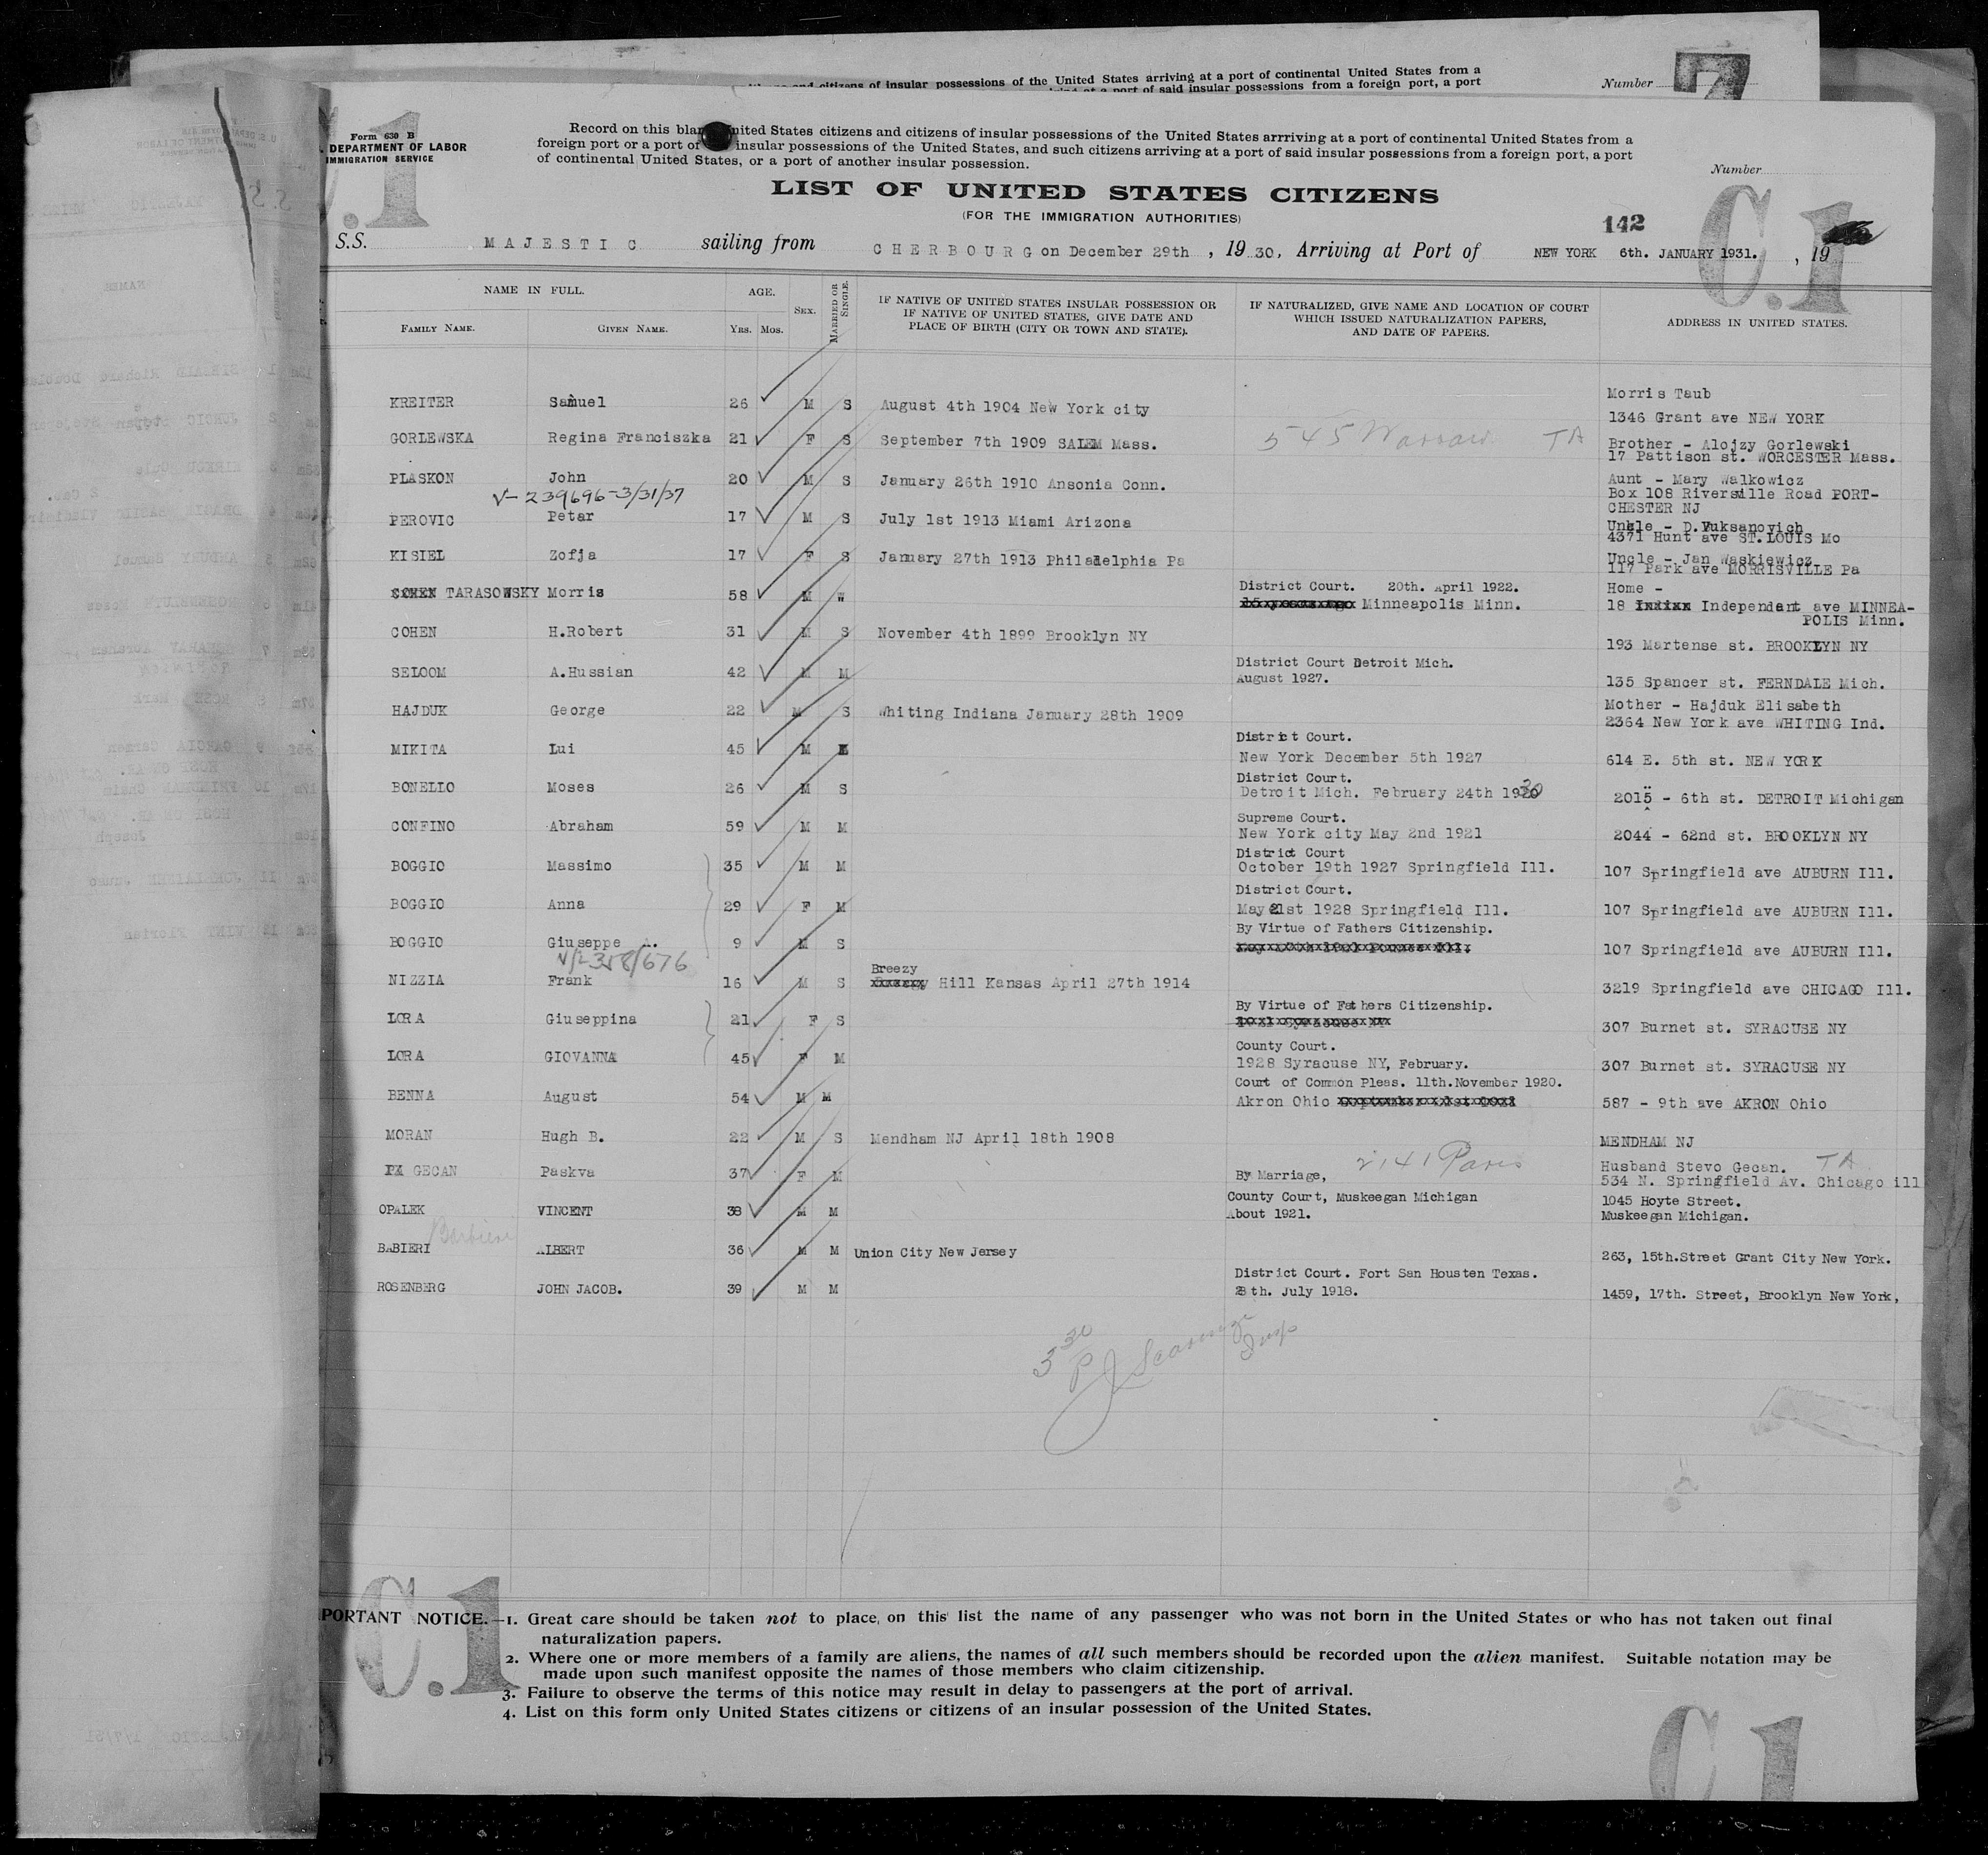 and citizens of insular possessions of the United States arriving at a port of continental United States from a
at a port of said insular possessions from a foreign port, a port
Number
7
C.1
Form 630 B
DEPARTMENT OF LABOR
IMMIGRATION SERVICE
Record on this blank United States citizens and citizens of insular possessions of the United States arrriving at a port of continental United States from a
foreign port or a port of insular possessions of the United States, and such citizens arriving at a port of said insular possessions from a foreign port, a port
of continental United States, or a port of another insular possession.
Number
LIST OF UNITED STATES CITIZENS
(FOR THE IMMIGRATION AUTHORITIES)
142
C.1
S.S. MAJESTIC sailing from CHERBOURG on December 29th, 1930, Arriving at Port of NEW YORK 6th. JANUARY 1931. , 19
NAME IN FULL. AGE. SEX. MARRIED OR SINGLE. IF NATIVE OF UNITED STATES INSULAR POSSESSION OR IF NATIVE OF UNITED STATES, GIVE DATE AND PLACE OF BIRTH (CITY OR TOWN AND STATE). IF NATURALIZED, GIVE NAME AND LOCATION OF COURT WHICH ISSUED NATURALIZATION PAPERS, AND DATE OF PAPERS. ADDRESS IN UNITED STATES.
FAMILY NAME. GIVEN NAME. YRS. MOS.
Morris Taub
KREITER Samuel 26 M S August 4th 1904 New York city 1346 Grant ave NEW YORK
GORLEWSKA Regina Franciszka 21 F S September 7th 1909 SALEM Mass. 545 Warsaw TA Brother - Alojzy Gorlewski
17 Pattison st. WORCESTER Mass.
PLASKON John 20 M S January 26th 1910 Ansonia Conn. Aunt - Mary Walkowicz
V-239696-3/31/37 Box 108 Riversville Road PORT-
CHESTER NJ
PEROVIC Petar 17 M S July 1st 1913 Miami Arizona Unkle - D.Vuksanovich
4371 Hunt ave ST.LOUIS Mo
KISIEL Zofja 17 F S January 27th 1913 Philadelphia Pa Uncle - Jan Waskiewicz
117 Park ave MORRISVILLE Pa
TARASOWSKY Morris 58 M W District Court. 20th. April 1922. Home -
Minneapolis Minn. 18 Independent ave MINNEA-
POLIS Minn.
COHEN H.Robert 31 M S November 4th 1899 Brooklyn NY
193 Martense st. BROOKLYN NY
SELOOM A.Hussian 42 M M District Court Detroit Mich.
August 1927. 135 Spancer st. FERNDALE Mich.
HAJDUK George 22 M S Whiting Indiana January 28th 1909 Mother - Hajduk Elisabeth
2364 New York ave WHITING Ind.
District Court.
MIKITA Lui 45 M New York December 5th 1927 614 E. 5th st. NEW YORK
District Court.
BONELLO Moses 26 M S Detroit Mich. February 24th 1930 2015 - 6th st. DETROIT Michigan
Supreme Court.
CONFINO Abraham 59 M M New York city May 2nd 1921 2044 - 62nd st. BROOKLYN NY
District Court
BOGGIO Massimo 35 M M October 19th 1927 Springfield Ill. 107 Springfield ave AUBURN Ill.
District Court.
BOGGIO Anna 29 F M May 21st 1928 Springfield Ill. 107 Springfield ave AUBURN Ill.
By Virtue of Fathers Citizenship.
BOGGIO Giuseppe A. 9 M S 107 Springfield ave AUBURN Ill.
V/L358/676
Breezy
NIZZIA Frank 16 M S Hill Kansas April 27th 1914 3219 Springfield ave CHICAGO Ill.
By Virtue of Fathers Citizenship.
LORA Giuseppina 21 F S 307 Burnet st. SYRACUSE NY
County Court.
LORA GIOVANNA 45 F M 1928 Syracuse NY, February. 307 Burnet st. SYRACUSE NY
Court of Common Pleas. 11th.November 1920.
BENNA August 54 M M Akron Ohio 587 - 9th ave AKRON Ohio
MORAN Hugh B. 22 M S Mendham NJ April 18th 1908 MENDHAM NJ
GECAN Paskva 37 F M By Marriage, 2141 Paris Husband Stevo Gecan. TA
534 N. Springfield Av. Chicago ill
OPALEK VINCENT 38 M M County Court, Muskeegan Michigan 1045 Hoyte Street.
About 1921. Muskeegan Michigan.
Barbieri
BABIERI ALBERT 36 M M Union City New Jersey 263, 15th.Street Grant City New York.
District Court. Fort San Housten Texas.
ROSENBERG JOHN JACOB. 39 M M 8th. July 1918. 1459, 17th. Street, Brooklyn New York,
3 30 P
Insp
C.1
IMPORTANT NOTICE.—1. Great care should be taken not to place, on this list the name of any passenger who was not born in the United States or who has not taken out final
naturalization papers.
2. Where one or more members of a family are aliens, the names of all such members should be recorded upon the alien manifest. Suitable notation may be
made upon such manifest opposite the names of those members who claim citizenship.
3. Failure to observe the terms of this notice may result in delay to passengers at the port of arrival.
4. List on this form only United States citizens or citizens of an insular possession of the United States.
C.1